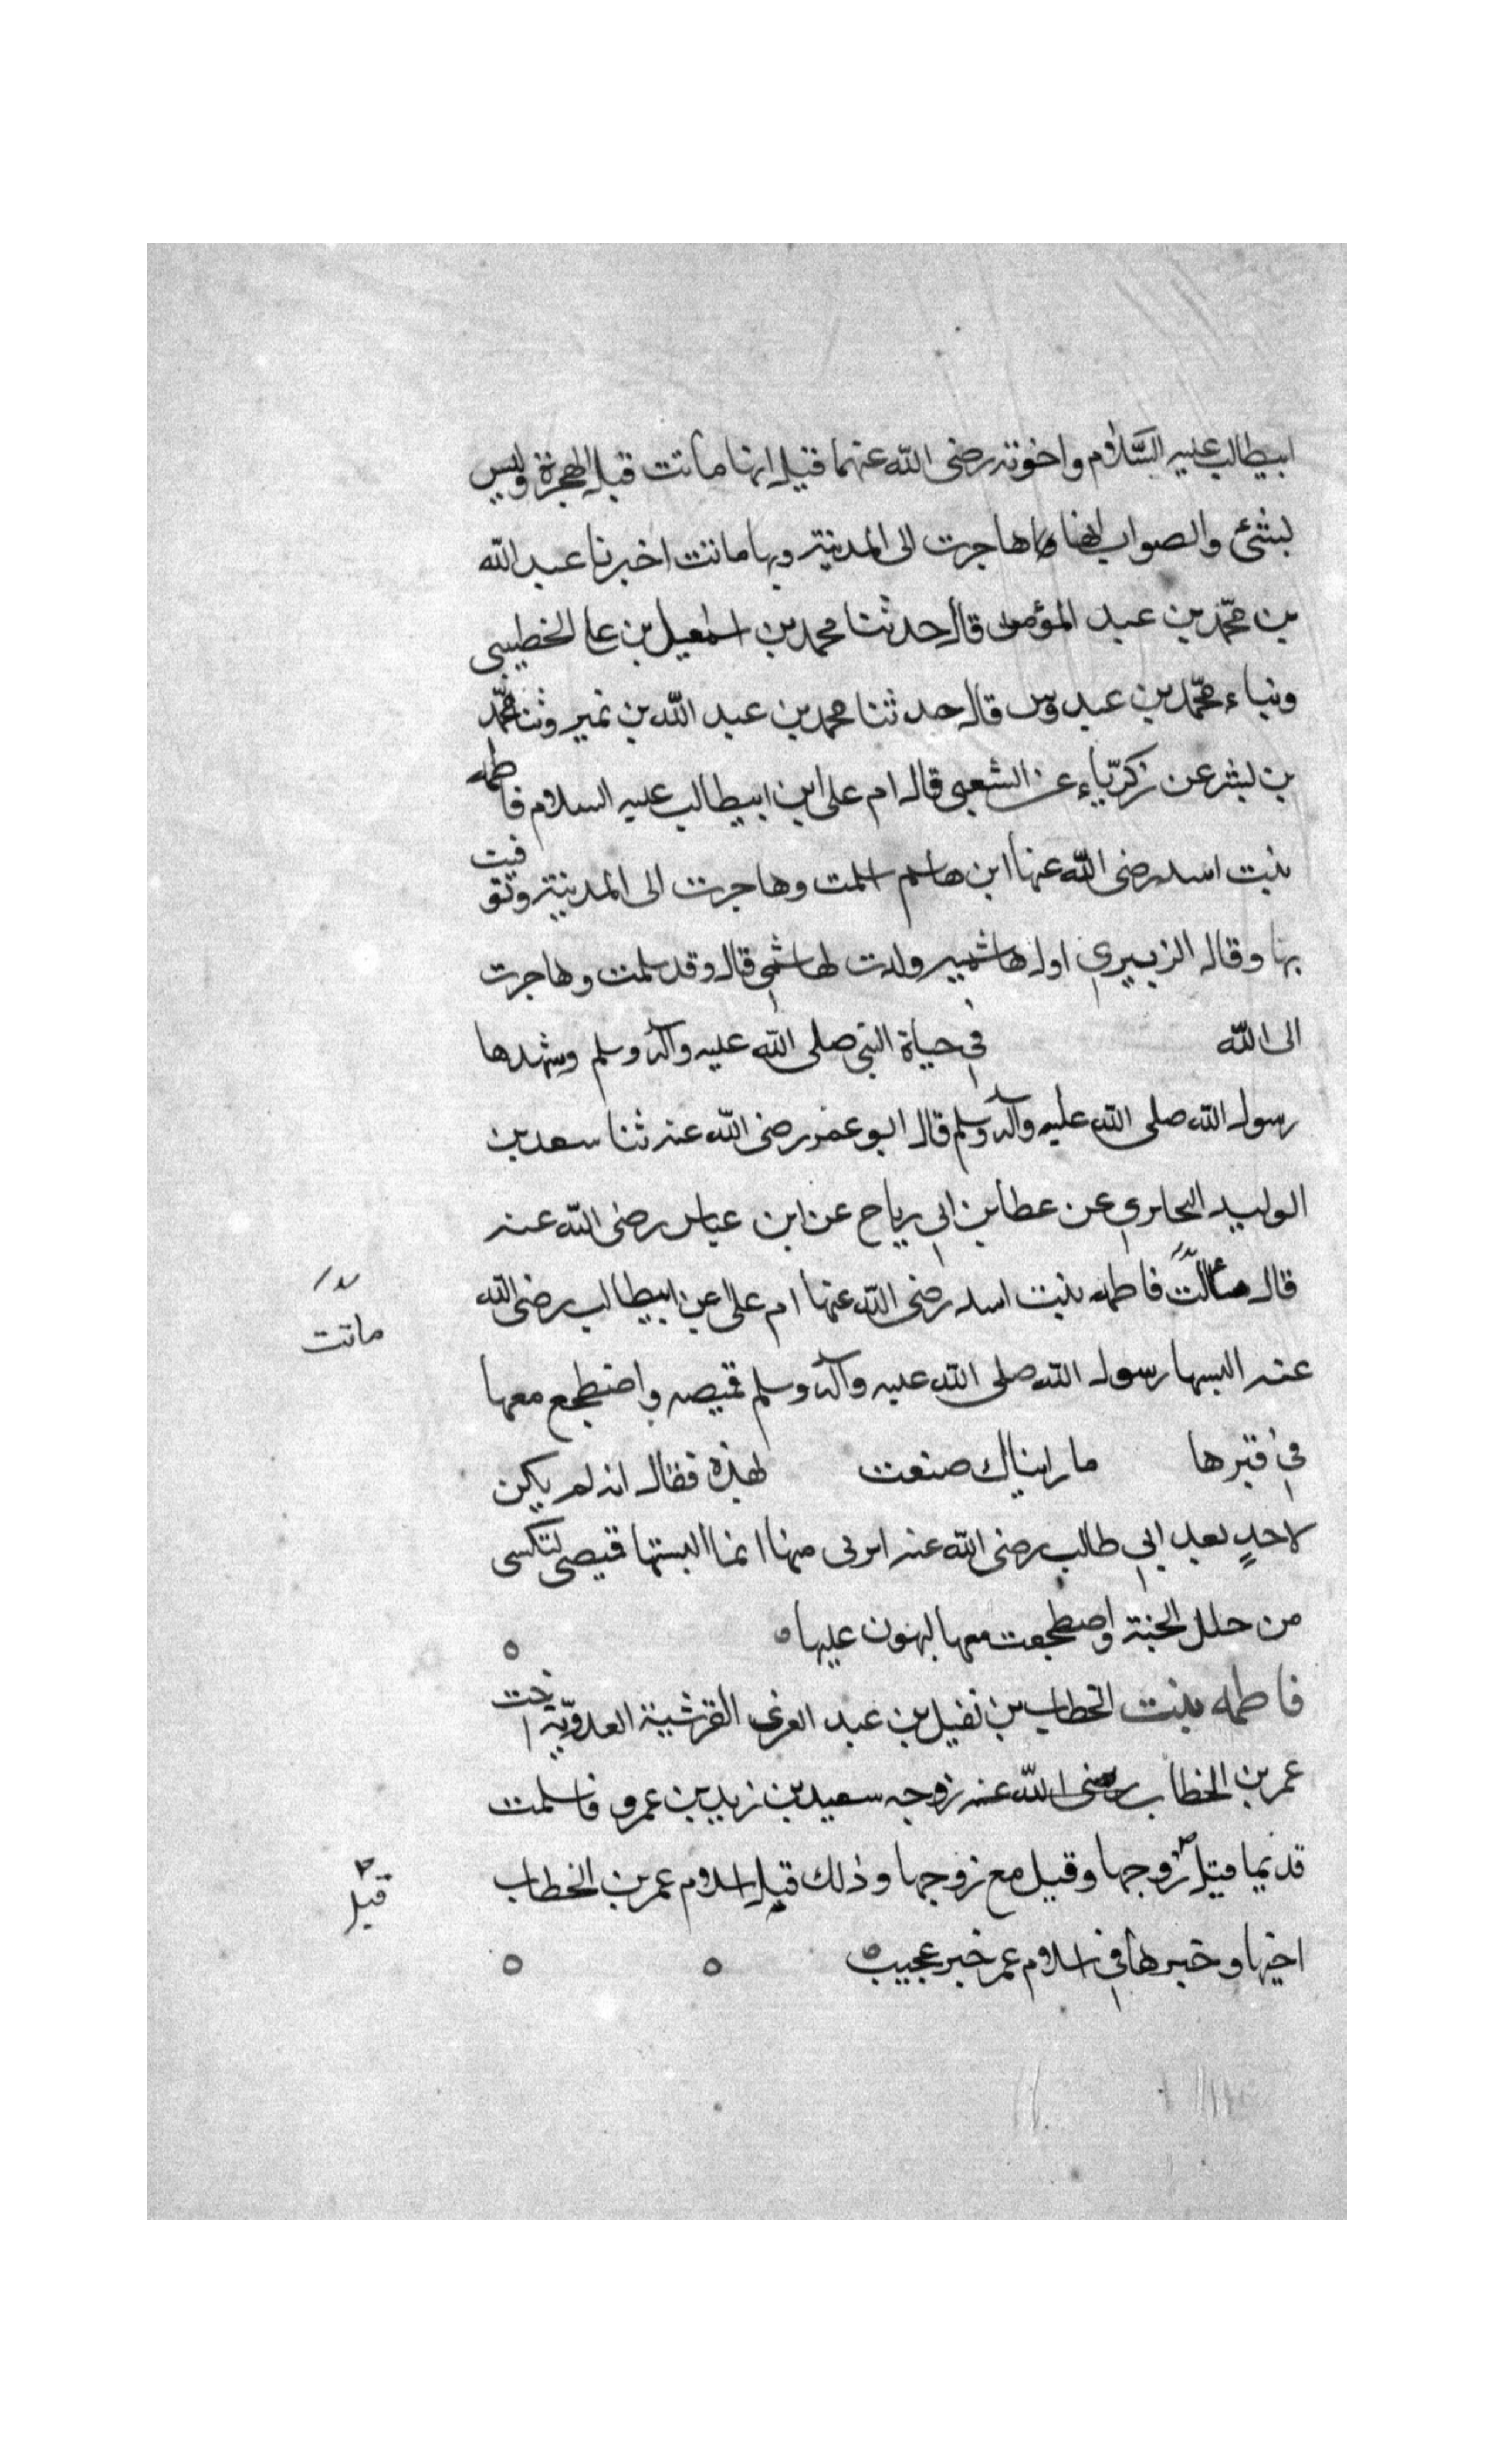 ابيطالب عليه السَّلام واخوته رضى الله عنهما قيل انها ماتت قبل الهجرة وليس
بشئ والصواب انها هاجرت الى المدينة وبها ماتت اخبرنا عبد الله
بن محمّد بن عبد المؤمن قال حدثنا محمد بن اسمعيل بن على الخطيبى
ونباء محمّد بن عبدوس قال حدثنا محمد بن عبد الله بن نمير وثنا محمّد
بن بشر عن زكريّاء عن الشعبى قال ام على ابن ابيطالب عليه السلام فاطمه
بنت اسد رضى الله عنها ابن هاشم اسلمت وهاجرت الى المدينة وتوفيت
بها وقال الزبيري اول هاشميه ولدت لهاشمى قال وقد اسلمت وهاجرت
الى الله في حياة النبى صلى الله عليه وآله وسلم وشهدها
رسول الله صلى الله عليه وآله وسلم قال ابو عمر رضى الله عنه ثنا سعد بن
الوليد البحاري عن عطا بن ابي رياح عن ابن عباس رضى الله عنه
قال فاطمه بنت اسد رضى الله عنها ام على بن ابيطالب رضى الله
ماتت
عنه البسها رسول الله صلى الله عليه وآله وسلم قميصه واضطجع معها
في قبرها ما رايناك صنعت لهذه فقال انه لم يكن
لاحدٍ بعد ابي طالب رضى الله عنه ابر بى منها انما البستها قميصى لتكسى
من حلل الجنة واضطجعت معها ليهون عليها
فاطمه بنت الخطاب بن نفيل بن عبد العزى القرشية العدويّة اخت
عمر بن الخطاب رضى الله عنه زوجه سعيد بن زيد بن عمرو فاسلمت
قديما قيل زوجها وقيل مع زوجها وذلك قبل اسلام عمر بن الخطاب
قبل
اخيها وخبرها في اسلام عمر خبر عجيب